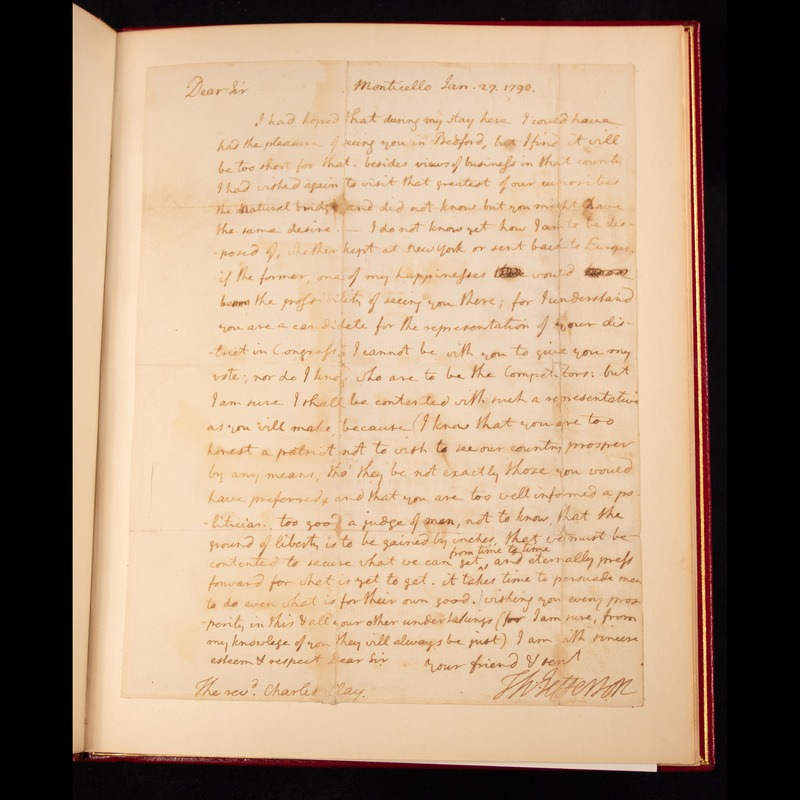 Dear Sir Monticello Jan. 27. 1790.
I had hoped that during my stay here I could have
had the pleasure of seeing you in Bedford, but I find it will
be too short for that. besides views of business in that county
I had wished again to visit that greatest of our curiosities
the Natural bridge, and did not know but you might have
the same desire. — I do not know yet how I am to be dis-
-posed of, whether kept at New York or sent back to Europe.
if the former, one of my happinesses would
be the possibility of seeing you there; for I understand
you are a candidate for the representation of your dis-
-trict in Congress. I cannot be with you to give you my
vote; nor do I know who are to be the Competitors: but
I am sure I shall be contented with such a representative
as you will make, because (I know that you are too
honest a patriot not to wish to see our country prosper
by any means, tho' they be not exactly those you would
have preferred, and that you are too well informed a po-
-litician, too good a judge of men, not to know, that the
ground of liberty is to be gained by inches, that we must be
contented to secure what we can get, from time to time and eternally press
forward for what is yet to get. it takes time to persuade men
to do even what is for their own good.) wishing you every pros-
-perity in this & all your other undertakings (for I am sure, from
my knowlege of you they will always be just) I am with sincere
esteem & respect Dear Sir your friend & servt
The revd. Charles Clay. Th: Jefferson